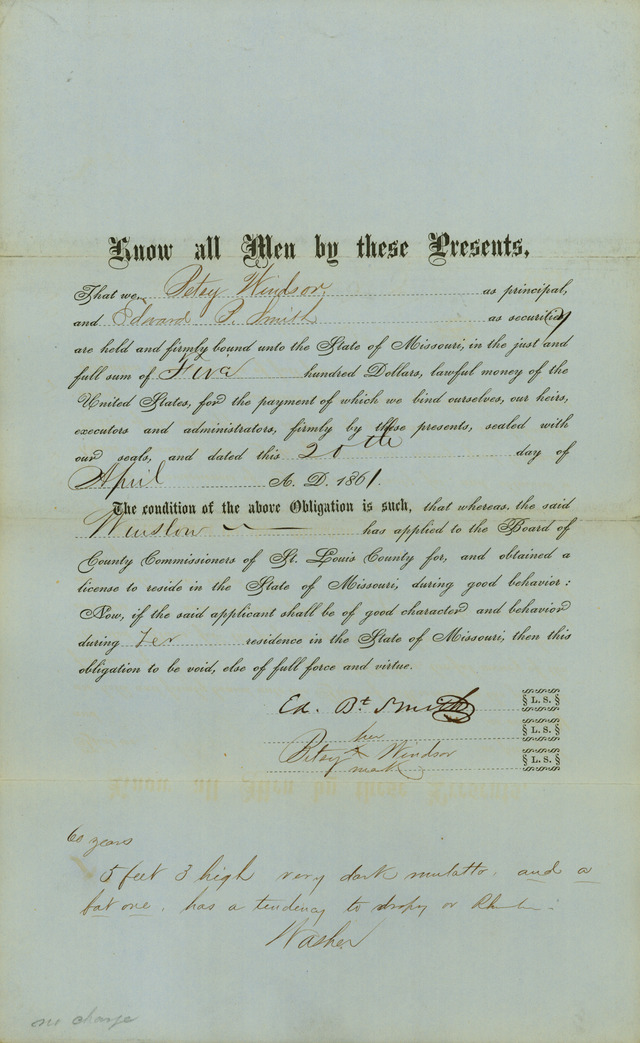 Know all Men by these Presents,
That we, Betsy Windsor as principal,
and Edward B. Smith as security
are held and firmly bound unto the State of Missouri, in the just and
full sum of Five hundred Dollars, lawful money of the
United States, for the payment of which we bind ourselves, our heirs,
executors and administrators, firmly by these presents, sealed with
our seals, and dated this 20th day of
April A. D. 1861.
The condition of the above Obligation is such, that whereas, the said
Winslow has applied to the Board of
County Commissioners of St. Louis County for, and obtained a
license to reside in the State of Missouri, during good behavior:
Now, if the said applicant shall be of good character and behavior
during her residence in the State of Missouri, then this
obligation to be void, else of full force and virtue.
Ed. Bt Smith L. S.
her L. S.
Betsy X Windsor L. S.
mark
60 years
5 feet 3 high very dark mulatto. and a
fat one. has a tendency to dropsy or
Washer
no charge